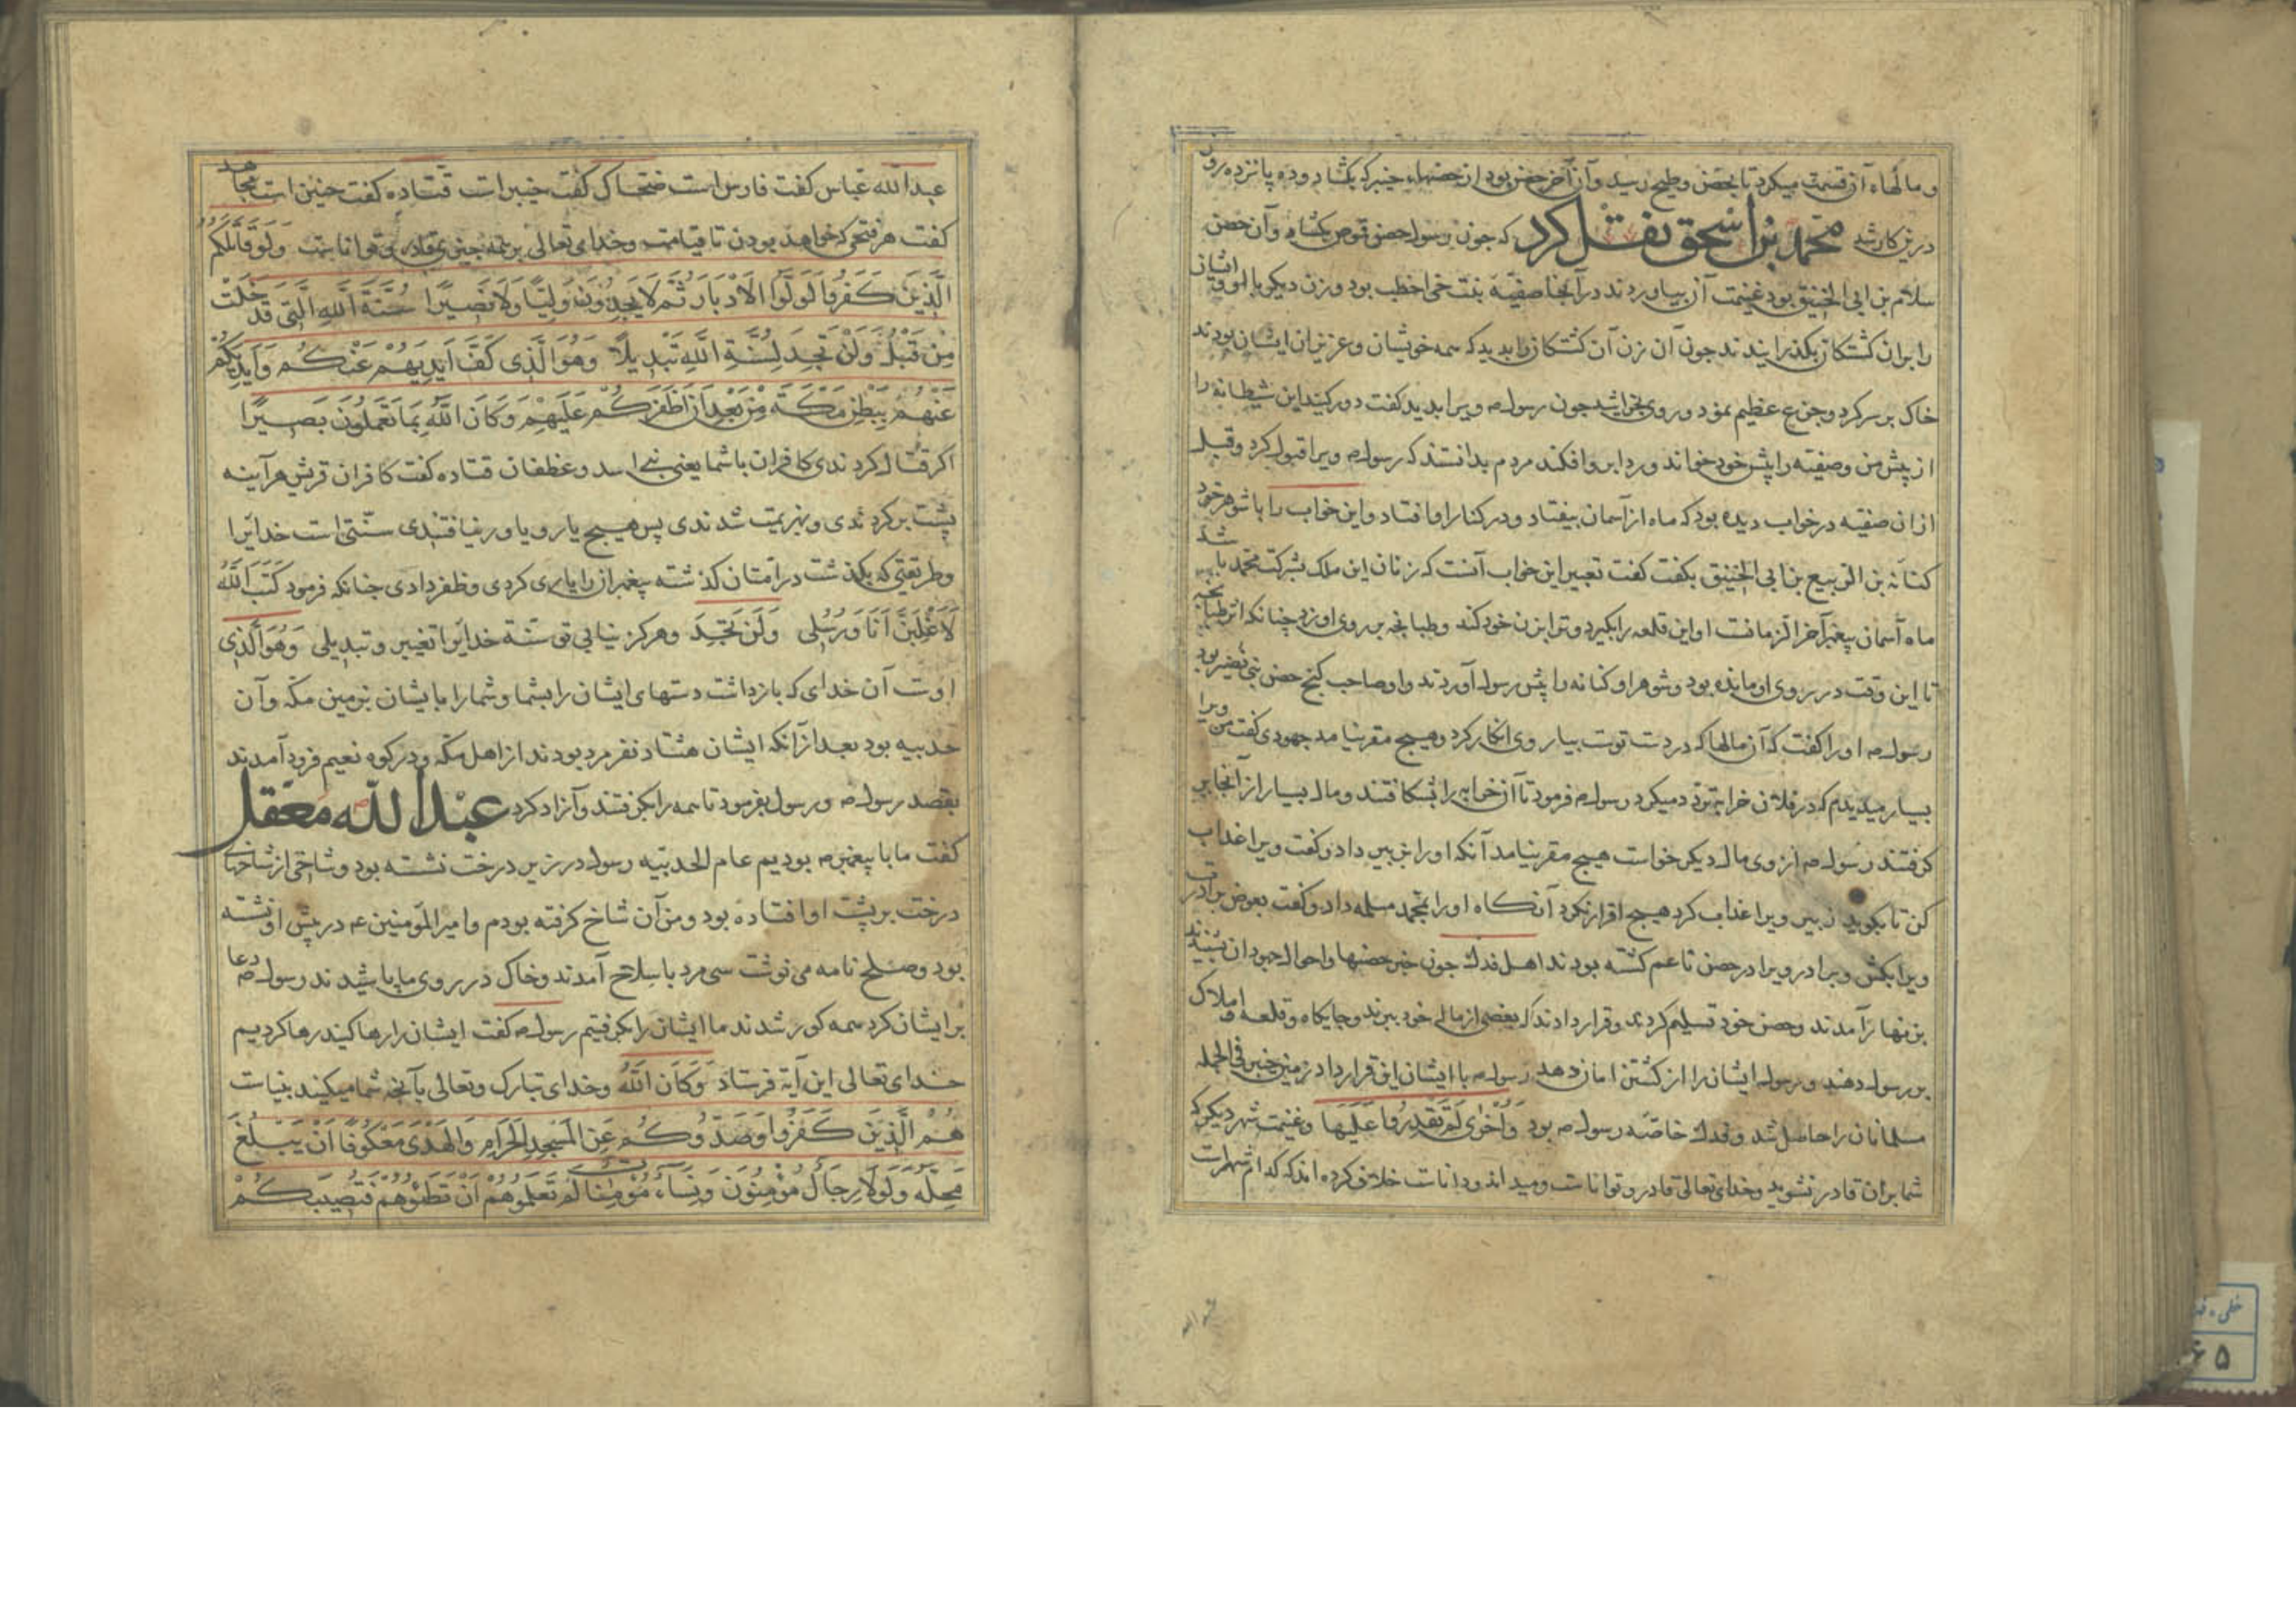 و مالهاء آن قسمت میکرد تا بحصن وطیح رسید و آن آخر حصنی بود از حصنهاء خیبر که بکشاد و ده پانزده روز
درین کار شد محمد بن اسحق نقل کرد که جون رسول حصن قموص بکشاد و آن حصن
سلام بن ابی الحقیق بود غنیمت آن بیاوردند در آنجا صفیّه بنت حی اخطب بود و زن دیکر با او و ایشان
را بران کشتکان بکذرایندند جون آن زن آن کشتکان را بدید که همه خویشان و عزیزان ایشان بودند
خاک بر سر کرد و جزع عظیم نمود و روی بخراشید جون رسول ص ویرا بدید کفت دور کنید این شیطانه را
از پیش من و صفیّه را پیش خود خواند و ردا برو افکند مردم بدانستند که رسول ص ویرا قبول کرد و قبل
ازان صفیّه در خواب دیده بود که ماه از آسمان بیفتاد و در کنار او افتاد و این خواب را با شوهر خود
کنانه بن الربیع بن ابی الحقیق بکفت کفت تعبیر این خواب آنست که زنان این ملک بشرکت محمد با شد
ماه آسمان پیغمبر آخر الزمانست او این قلعه را بکیرد و ترا بزن خود کند و طبانجه بر روی او زد جنانکه اثر طبانجه
تا این وقت در روی او مانده بود و شوهر او کنانه را پیش رسول آوردند و او صاحب کنج حصن بنی نضیر بود
رسول ص او را کفت که آن مالها که در دست توست بیار وی انکار کرد و هیچ مقر نیامد جهودی کفت من ویرا
بسیار میدیدم که در فلان خرابه تردد میکرد رسول ص فرمود تا آن خرابه را بشکافتند و مال بسیار از آنجا بر
کرفتند رسول ص از وی مال دیکر خواست هیچ مقر نیامد آنکه او را بزبیر داد و کفت ویرا عذاب
کن تا بکوید زبیر ویرا عذاب کرد هیچ اقرار نکرد آنکاه او را بمحمد مسلمه داد و کفت بعوض برادرت
ویرا بکش و برادر ویرا در حصن ناعم کشته بودند اهل فدک جون خبر حصنها و احوال جهودان بشنیدند
بزنهار آمدند و حصن خود تسلیم کردند و قرار دادند که بعضی از مال خود ببرند و جایکاه و قلعه و املاک
بررسول دهند و رسول ایشان را از کشتن امان دهد رسول ص با ایشان این قرار داد زمین خیبر فی الجمله
مسلمانان را حاصل شد و فدک خاصّه رسول ص بود وَاُخْرٰی لَمْ تَقْدِرُوا عَلَیْهَا و غنیمت شهر دیکر که
شما بران قادر نشوید و خدای تعالی قادر و تواناست و میداند و داناست خلاف کرده اند که کدام شهرست
عبدالله عباس کفت فارس است ضحاک کفت خیبر است قتاده کفت حنین است مجاهد
کفت هر فتحی که خواهد بودن تا قیامت و خدای تعالی بر همه جیزی قادر و تواناست وَلَوْ قَاتَلَكُمْ
الَّذِينَ كَفَرُوا لَوَلَّوُا الْاَدْبَارَ ثُمَّ لَا يَجِدُونَ وَلِيًّا وَلَا نَصِيرًا سُنَّةَ اللّٰهِ الَّتِي قَدْ خَلَتْ
مِنْ قَبْلُ وَلَنْ تَجِدَ لِسُنَّةِ اللّٰهِ تَبْدِيلًا وَهُوَ الَّذِي كَفَّ اَيْدِيَهُمْ عَنْكُمْ وَاَيْدِيَكُمْ
عَنْهُمْ بِبَطْنِ مَكَّةَ مِنْ بَعْدِ اَنْ اَظْفَرَكُمْ عَلَيْهِمْ وَكَانَ اللّٰهُ بِمَا تَعْمَلُونَ بَصِيرًا
اکر قتال کردندی کافران با شما یعنی بنی اسد و غطفان قتاده کفت کافران قریش هر آینه
پشت برکردندی و بهزیمت شدندی پس هیچ یار و یاور نیافتندی سنّتی است خدایرا
و طریقتی که بکذشت در امتان کذشته پیغمبران را یاری کردی و ظفر دادی جنانکه فرمود كَتَبَ اللّٰهُ
لَاَغْلِبَنَّ اَنَا وَرُسُلِی وَلَنْ تَجِدَ و هرکز نیابی تو سنّة خدایرا تغییر و تبدیلی وَهُوَ الَّذِی
اوست آن خدای که بازداشت دستهای ایشان را بشما و شما را بایشان بزمین مکّه و آن
حدیبیه بود بعد از آنکه ایشان هشتاد نفر مرد بودند از اهل مکّه و در کوه نعیم فرود آمدند
بقصد رسول ص و رسول بفرمود تا همه را بکرفتند و آزاد کرد عبدالله معقل
کفت ما با پیغمبر ص بودیم عام الحدیبیه رسول در زیر درخت نشسته بود و شاخی از شاخهای
درخت بر پشت او افتاده بود و من آن شاخ کرفته بودم و امیر المؤمنین ع در پیش او نشسته
بود و صلح نامه می نوشت سی مرد با سلاح آمدند و خاک در روی ما پاشیدند رسول ص دعا
بر ایشان کرد همه کور شدند ما ایشان را بکرفتیم رسول ص کفت ایشان را رها کنید رها کردیم
خدای تعالی این آیة فرستاد وَكَانَ اللّٰهُ و خدای تبارک و تعالی بآنچه شما میکنید بیناست
هُمُ الَّذِينَ كَفَرُوا وَصَدُّوكُمْ عَنِ الْمَسْجِدِ الْحَرَامِ وَالْهَدْيَ مَعْكُوفًا اَنْ يَبْلُغَ
مَحِلَّهُ وَلَوْلَا رِجَالٌ مُؤْمِنُونَ وَنِسَاءٌ مُؤْمِنَاتٌ لَمْ تَعْلَمُوهُمْ اَنْ تَطَئُوهُمْ فَتُصِيبَكُمْ